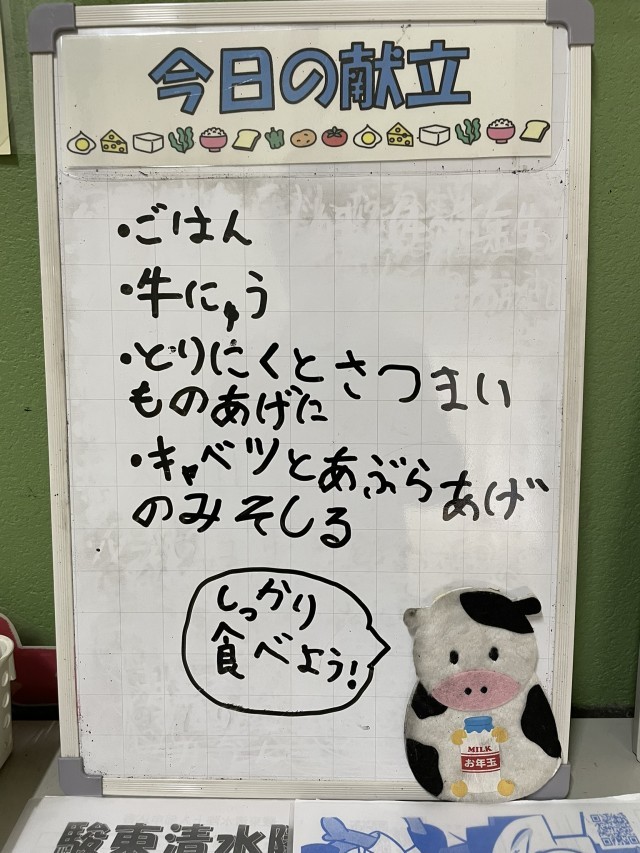 今日の献立
・ごはん
・牛にゅう
・とりにくとさつまい
ものあげに
・キャベツとあぶらあげ
のみそしる
しっかり
食べよう!
MILK
お年玉
駿東清水